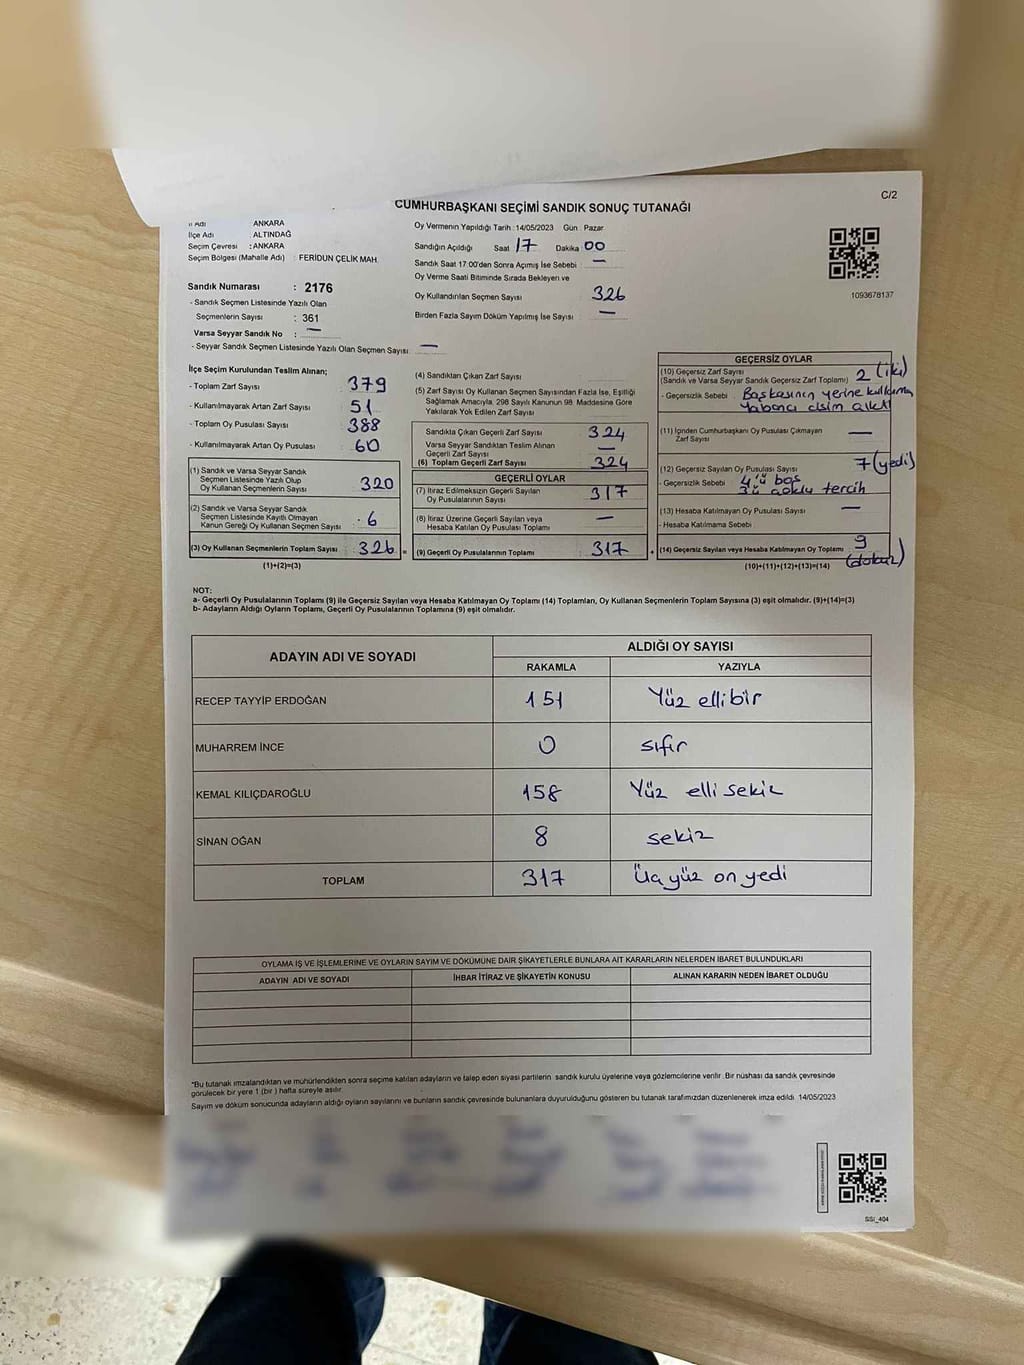 C/2
CUMHURBAŞKANI SEÇİMİ SANDIK SONUÇ TUTANAĞI
İl Adı ANKARA
İlçe Adı ALTINDAĞ
Seçim Çevresi : ANKARA
Seçim Bölgesi (Mahalle Adı) : FERİDUN ÇELİK MAH.
Sandık Numarası : 2176
- Sandık Seçmen Listesinde Yazılı Olan
Seçmenlerin Sayısı : 361
Varsa Seyyar Sandık No : —
- Seyyar Sandık Seçmen Listesinde Yazılı Olan Seçmen Sayısı —
Oy Vermenin Yapıldığı Tarih : 14/05/2023 Gün : Pazar
Sandığın Açıldığı Saat 17 Dakika 00
Sandık Saat 17:00'den Sonra Açımış İse Sebebi : —
Oy Verme Saati Bitiminde Sırada Bekleyen ve
Oy Kullandırılan Seçmen Sayısı : 326
Birden Fazla Sayım Döküm Yapılmış İse Sayısı : —
1093678137
İlçe Seçim Kurulundan Teslim Alınan;
- Toplam Zarf Sayısı 379
- Kullanılmayarak Artan Zarf Sayısı 51
- Toplam Oy Pusulası Sayısı 388
- Kullanılmayarak Artan Oy Pusulası 60
(1) Sandık ve Varsa Seyyar Sandık
Seçmen Listesinde Yazılı Olup
Oy Kullanan Seçmenlerin Sayısı 320
(2) Sandık ve Varsa Seyyar Sandık
Seçmen Listesinde Kayıtlı Olmayan
Kanun Gereği Oy Kullanan Seçmen Sayısı 6
(3) Oy Kullanan Seçmenlerin Toplam Sayısı 326 =
(1)+(2)=(3)
(4) Sandıktan Çıkan Zarf Sayısı
(5) Zarf Sayısı Oy Kullanan Seçmen Sayısından Fazla İse, Eşitliği
Sağlamak Amacıyla, 298 Sayılı Kanunun 98. Maddesine Göre
Yakılarak Yok Edilen Zarf Sayısı
Sandıkta Çıkan Geçerli Zarf Sayısı 324
Varsa Seyyar Sandıktan Teslim Alınan
Geçerli Zarf Sayısı —
(6) Toplam Geçerli Zarf Sayısı 324
GEÇERLİ OYLAR
(7) İtiraz Edilmeksizin Geçerli Sayılan
Oy Pusulalarının Sayısı 317
(8) İtiraz Üzerine Geçerli Sayılan veya
Hesaba Katılan Oy Pusulası Toplamı —
(9) Geçerli Oy Pusulalarının Toplamı 317 +
GEÇERSİZ OYLAR
(10) Geçersiz Zarf Sayısı
(Sandık ve Varsa Seyyar Sandık Geçersiz Zarf Toplamı) 2 (iki)
- Geçersizlik Sebebi Başkasının yerine kullanma
Yabancı cisim
(11) İçinden Cumhurbaşkanı Oy Pusulası Çıkmayan
Zarf Sayısı —
(12) Geçersiz Sayılan Oy Pusulası Sayısı 7 (yedi)
- Geçersizlik Sebebi 4'ü boş
3'ü çoklu tercih
(13) Hesaba Katılmayan Oy Pusulası Sayısı —
- Hesaba Katılmama Sebebi
(14) Geçersiz Sayılan veya Hesaba Katılmayan Oy Toplamı 9 (dokuz)
(10)+(11)+(12)+(13)=(14)
NOT:
a- Geçerli Oy Pusulalarının Toplamı (9) ile Geçersiz Sayılan veya Hesaba Katılmayan Oy Toplamı (14) Toplamları, Oy Kullanan Seçmenlerin Toplam Sayısına (3) eşit olmalıdır. (9)+(14)=(3)
b- Adayların Aldığı Oyların Toplamı, Geçerli Oy Pusulalarının Toplamına (9) eşit olmalıdır.
ADAYIN ADI VE SOYADI ALDIĞI OY SAYISI
RAKAMLA YAZIYLA
RECEP TAYYİP ERDOĞAN 151 Yüz elli bir
MUHARREM İNCE 0 sıfır
KEMAL KILIÇDAROĞLU 158 Yüz elli sekiz
SİNAN OĞAN 8 sekiz
TOPLAM 317 Üçyüz on yedi
OYLAMA İŞ VE İŞLEMLERİNE VE OYLARIN SAYIM VE DÖKÜMÜNE DAİR ŞİKAYETLERLE BUNLARA AİT KARARLARIN NELERDEN İBARET BULUNDUKLARI
ADAYIN ADI VE SOYADI İHBAR İTİRAZ VE ŞİKAYETİN KONUSU ALINAN KARARIN NEDEN İBARET OLDUĞU
*Bu tutanak imzalandıktan ve mühürlendikten sonra seçime katılan adayların ve talep eden siyasi partilerin sandık kurulu üyelerine veya gözlemcilerine verilir. Bir nüshası da sandık çevresinde
görülecek bir yere 1 (bir ) hafta süreyle asılır.
Sayım ve döküm sonucunda adayların aldığı oyların sayılarını ve bunların sandık çevresinde bulunanlara duyurulduğunu gösteren bu tutanak tarafımızdan düzenlenerek imza edildi. 14/05/2023
SSI_404